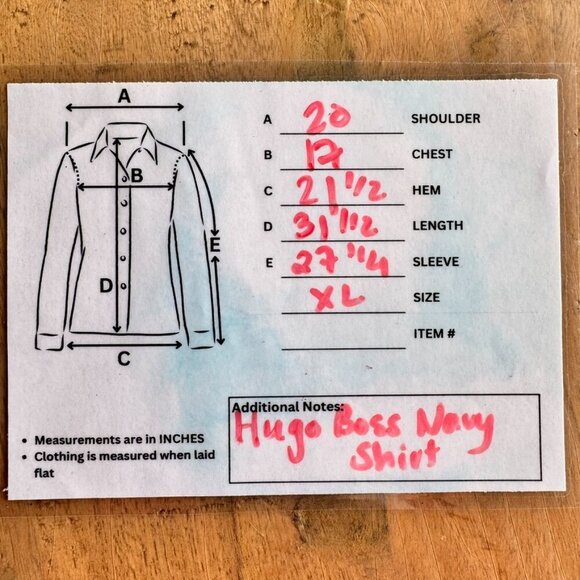 A
B
E
D
C
A 20 SHOULDER
B 17 CHEST
C 21 1/2 HEM
D 31 1/2 LENGTH
E 27 1/4 SLEEVE
XL SIZE
ITEM #
Additional Notes:
Hugo Boss Navy
Shirt
• Measurements are in INCHES
• Clothing is measured when laid
flat